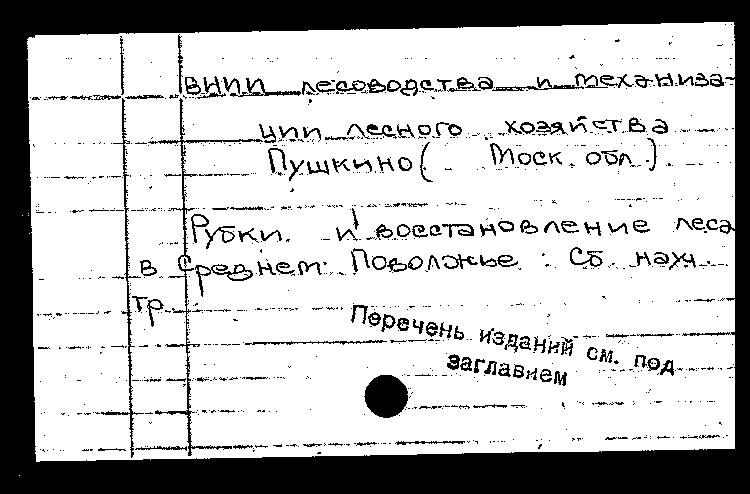 ВНИИ лесоводства и механиза-
ции лесного хозяйства
Пушкино (Моск. обл.).
Рубки и восстановление леса
в Среднем Поволжье: Сб. науч.
тр.
Перечень изданий см. под
заглавием